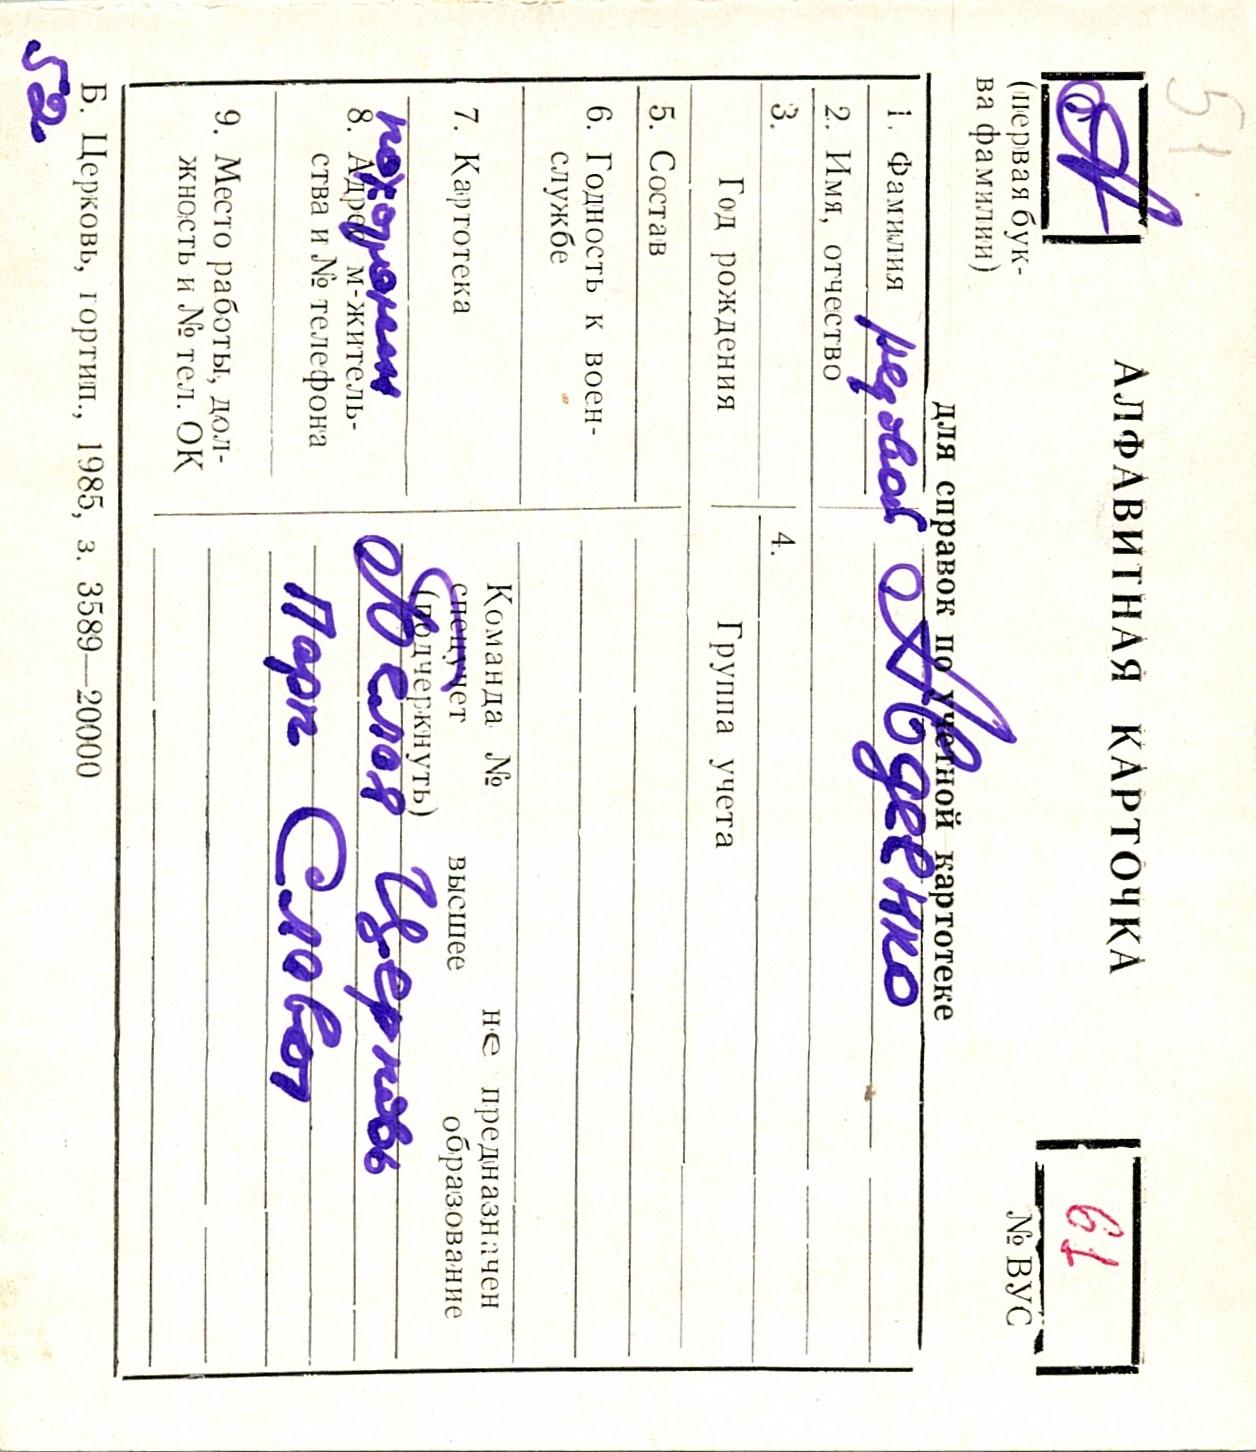 51
А
(первая бук-
ва фамилии)
АЛФАВИТНАЯ КАРТОЧКА
для справок по учетной картотеке
61
№ ВУС
1. Фамилия рядовой Авдеенко
2. Имя, отчество
3.
Год рождения
4.
Группа учета
5. Состав
6. Годность к воен-
службе
7. Картотека
Команда № не предназначен
спецучет высшее образование
(подчеркнуть)
похоронен
8. Адрес м-житель-
ства и № телефона
Белая Церковь
Парк Славы
9. Место работы, дол-
жность и № тел. ОК
Б. Церковь, гортип., 1985, з. 3589—20000
52